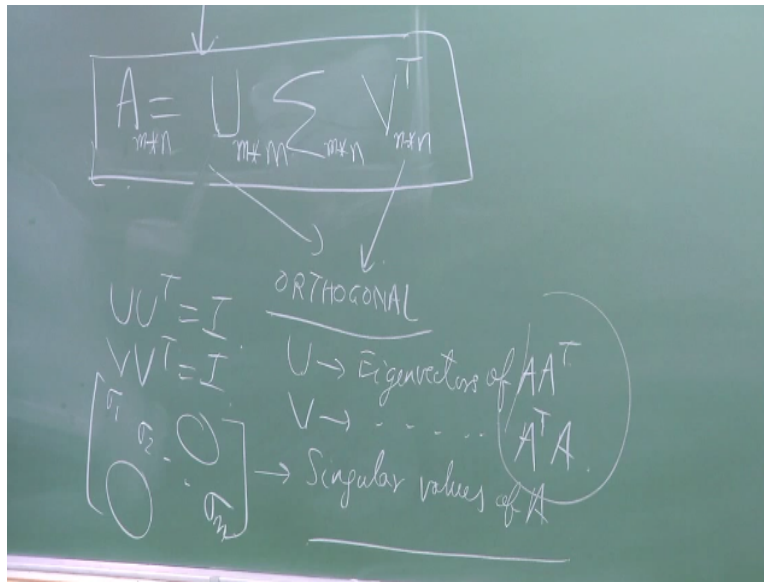 A m*n = U m*m Σ m*n V^T n*n
ORTHOGONAL
UU^T = I
VV^T = I
U → Eigenvectors of AA^T
V → - - - - - A^T A
[σ1 σ2 . . 0 0 σn] → Singular values of A